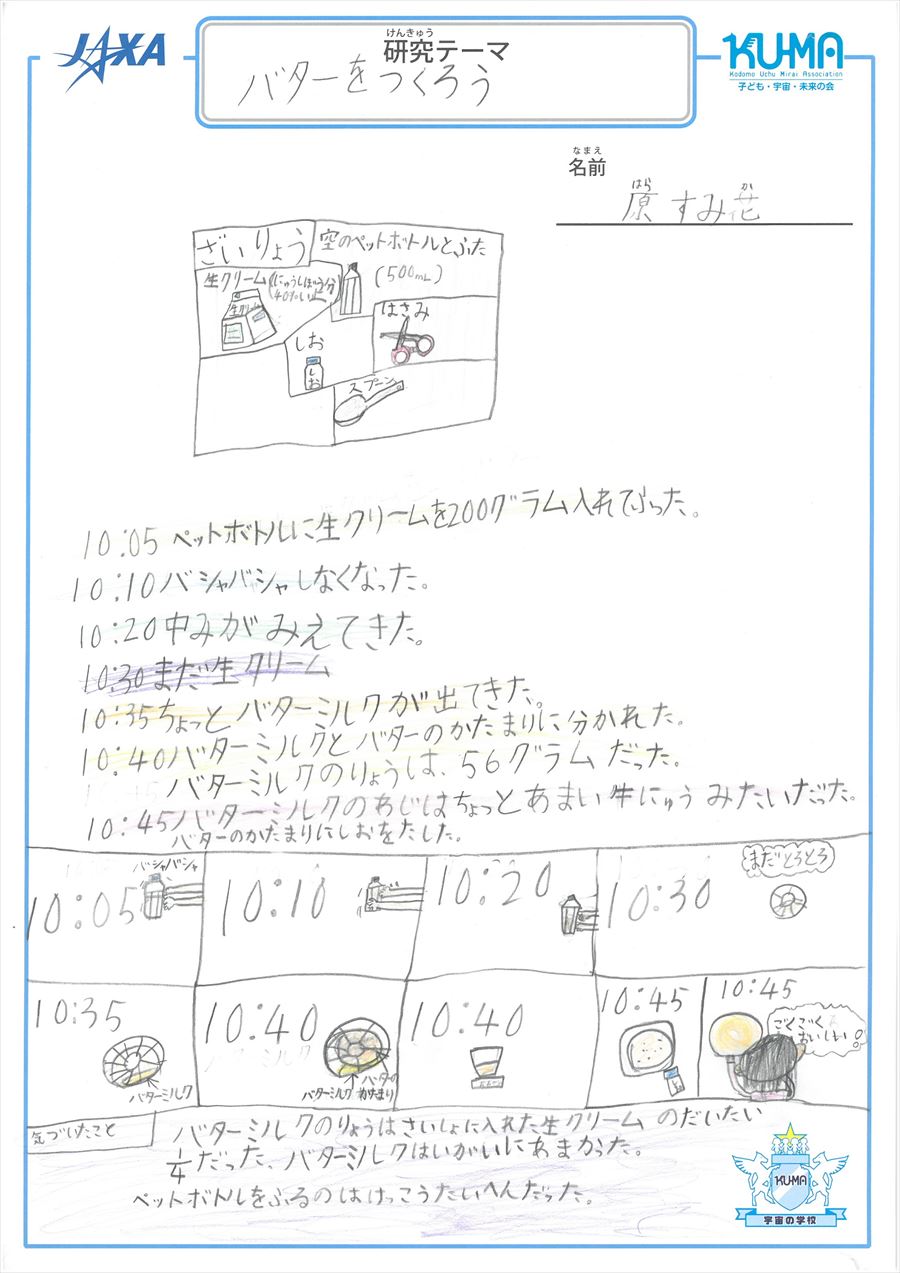 JAXA
けんきゅう
研究テーマ
バターをつくろう
KUMA
Kodomo Uchu Mirai Association
子ども・宇宙・未来の会
なまえ
名前
はら か
原 すみ花
ざいりょう
空のペットボトルとふた
(500mL)
生クリーム(にゅうしぼう分
40%いじょう)
生クリーム
はさみ
しお
しお
スプーン
10:05 ペットボトルに生クリームを200グラム入れてふった。
10:10 バシャバシャしなくなった。
10:20 中みがみえてきた。
10:30 まだ生クリーム
10:35 ちょっとバターミルクが出てきた。
10:40 バターミルクとバターのかたまりに分かれた。
バターミルクのりょうは、56グラムだった。
10:45 バターミルクのあじはちょっとあまい牛にゅうみたいだった。
バターのかたまりにしおをたした。
10:05
バシャバシャ
10:10
10:20
10:30
まだとろとろ
10:35
バターミルク
10:40
バターミルク
バターの
かたまり
10:40
10:45
10:45
ごくごく
おいしい!
気づいたこと
バターミルクのりょうはさいしょに入れた生クリームのだいたい
1/4だった、バターミルクはいがいにあまかった。
ペットボトルをふるのはけっこうたいへんだった。
KUMA
宇宙の学校